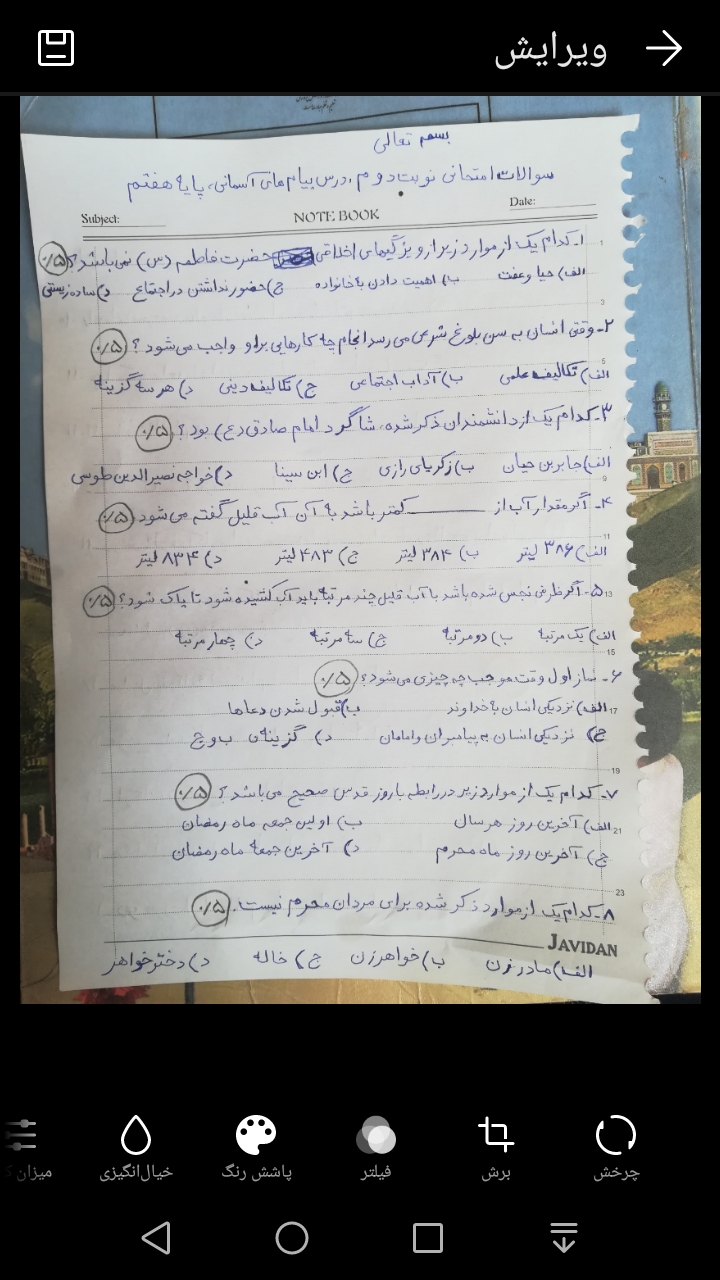 ویرایش
بسمه تعالی
سوالات امتحانی نوبت دوم، درس پیام های آسمانی، پایه هفتم
Subject:
NOTE BOOK
Date:
۱- کدام یک از موارد زیر از ویژگیهای اخلاقی حضرت فاطمه (س) نمی باشد؟ ۰/۵
الف) حیا و عفت ب) اهمیت دادن به خانواده ج) حضور نداشتن در اجتماع د) ساده زیستی
۲- وقتی انسانی به سن بلوغ شرعی می رسد انجام چه کارهایی براو واجب می شود؟ ۰/۵
الف) تکالیف علمی ب) آداب اجتماعی ج) تکالیف دینی د) هر سه گزینه
۳- کدام یک از دانشمندان ذکر شده، شاگرد امام صادق (ع) بود؟ ۰/۵
الف) جابربن حیان ب) زکریای رازی ج) ابن سینا د) خواجه نصیرالدین طوسی
۴- اگر مقدار آب از ــــــ کمتر باشد به آن آب قلیل گفته می شود ۰/۵
الف) ۳۸۶ لیتر ب) ۳۸۴ لیتر ج) ۴۸۳ لیتر د) ۸۳۴ لیتر
۵- اگر ظرفی نجس شده باشد با آب قلیل چند مرتبه باید آب کشیده شود تا پاک شود؟ ۰/۵
الف) یک مرتبه ب) دو مرتبه ج) سه مرتبه د) چهار مرتبه
۶- نماز اول وقت موجب چه چیزی می شود؟ ۰/۵
الف) نزدیکی انسان با خداوند ب) قبول شدن دعاها
ج) نزدیکی انسان به پیامبران و امامان د) گزینه ی ب و ج
۷- کدام یک از موارد زیر در رابطه با روز قدس صحیح می باشد؟ ۰/۵
الف) آخرین روز هر سال ب) اولین جمعه ماه رمضان
ج) آخرین روز ماه محرم د) آخرین جمعه ماه رمضان
۸- کدام یک از موارد ذکر شده برای مردان محرم نیست. ۰/۵
JAVIDAN
الف) مادر زن ب) خواهر زن ج) خاله د) دختر خواهر
چرخش برش فیلتر پاشش رنگ خیال‌انگیزی میزان